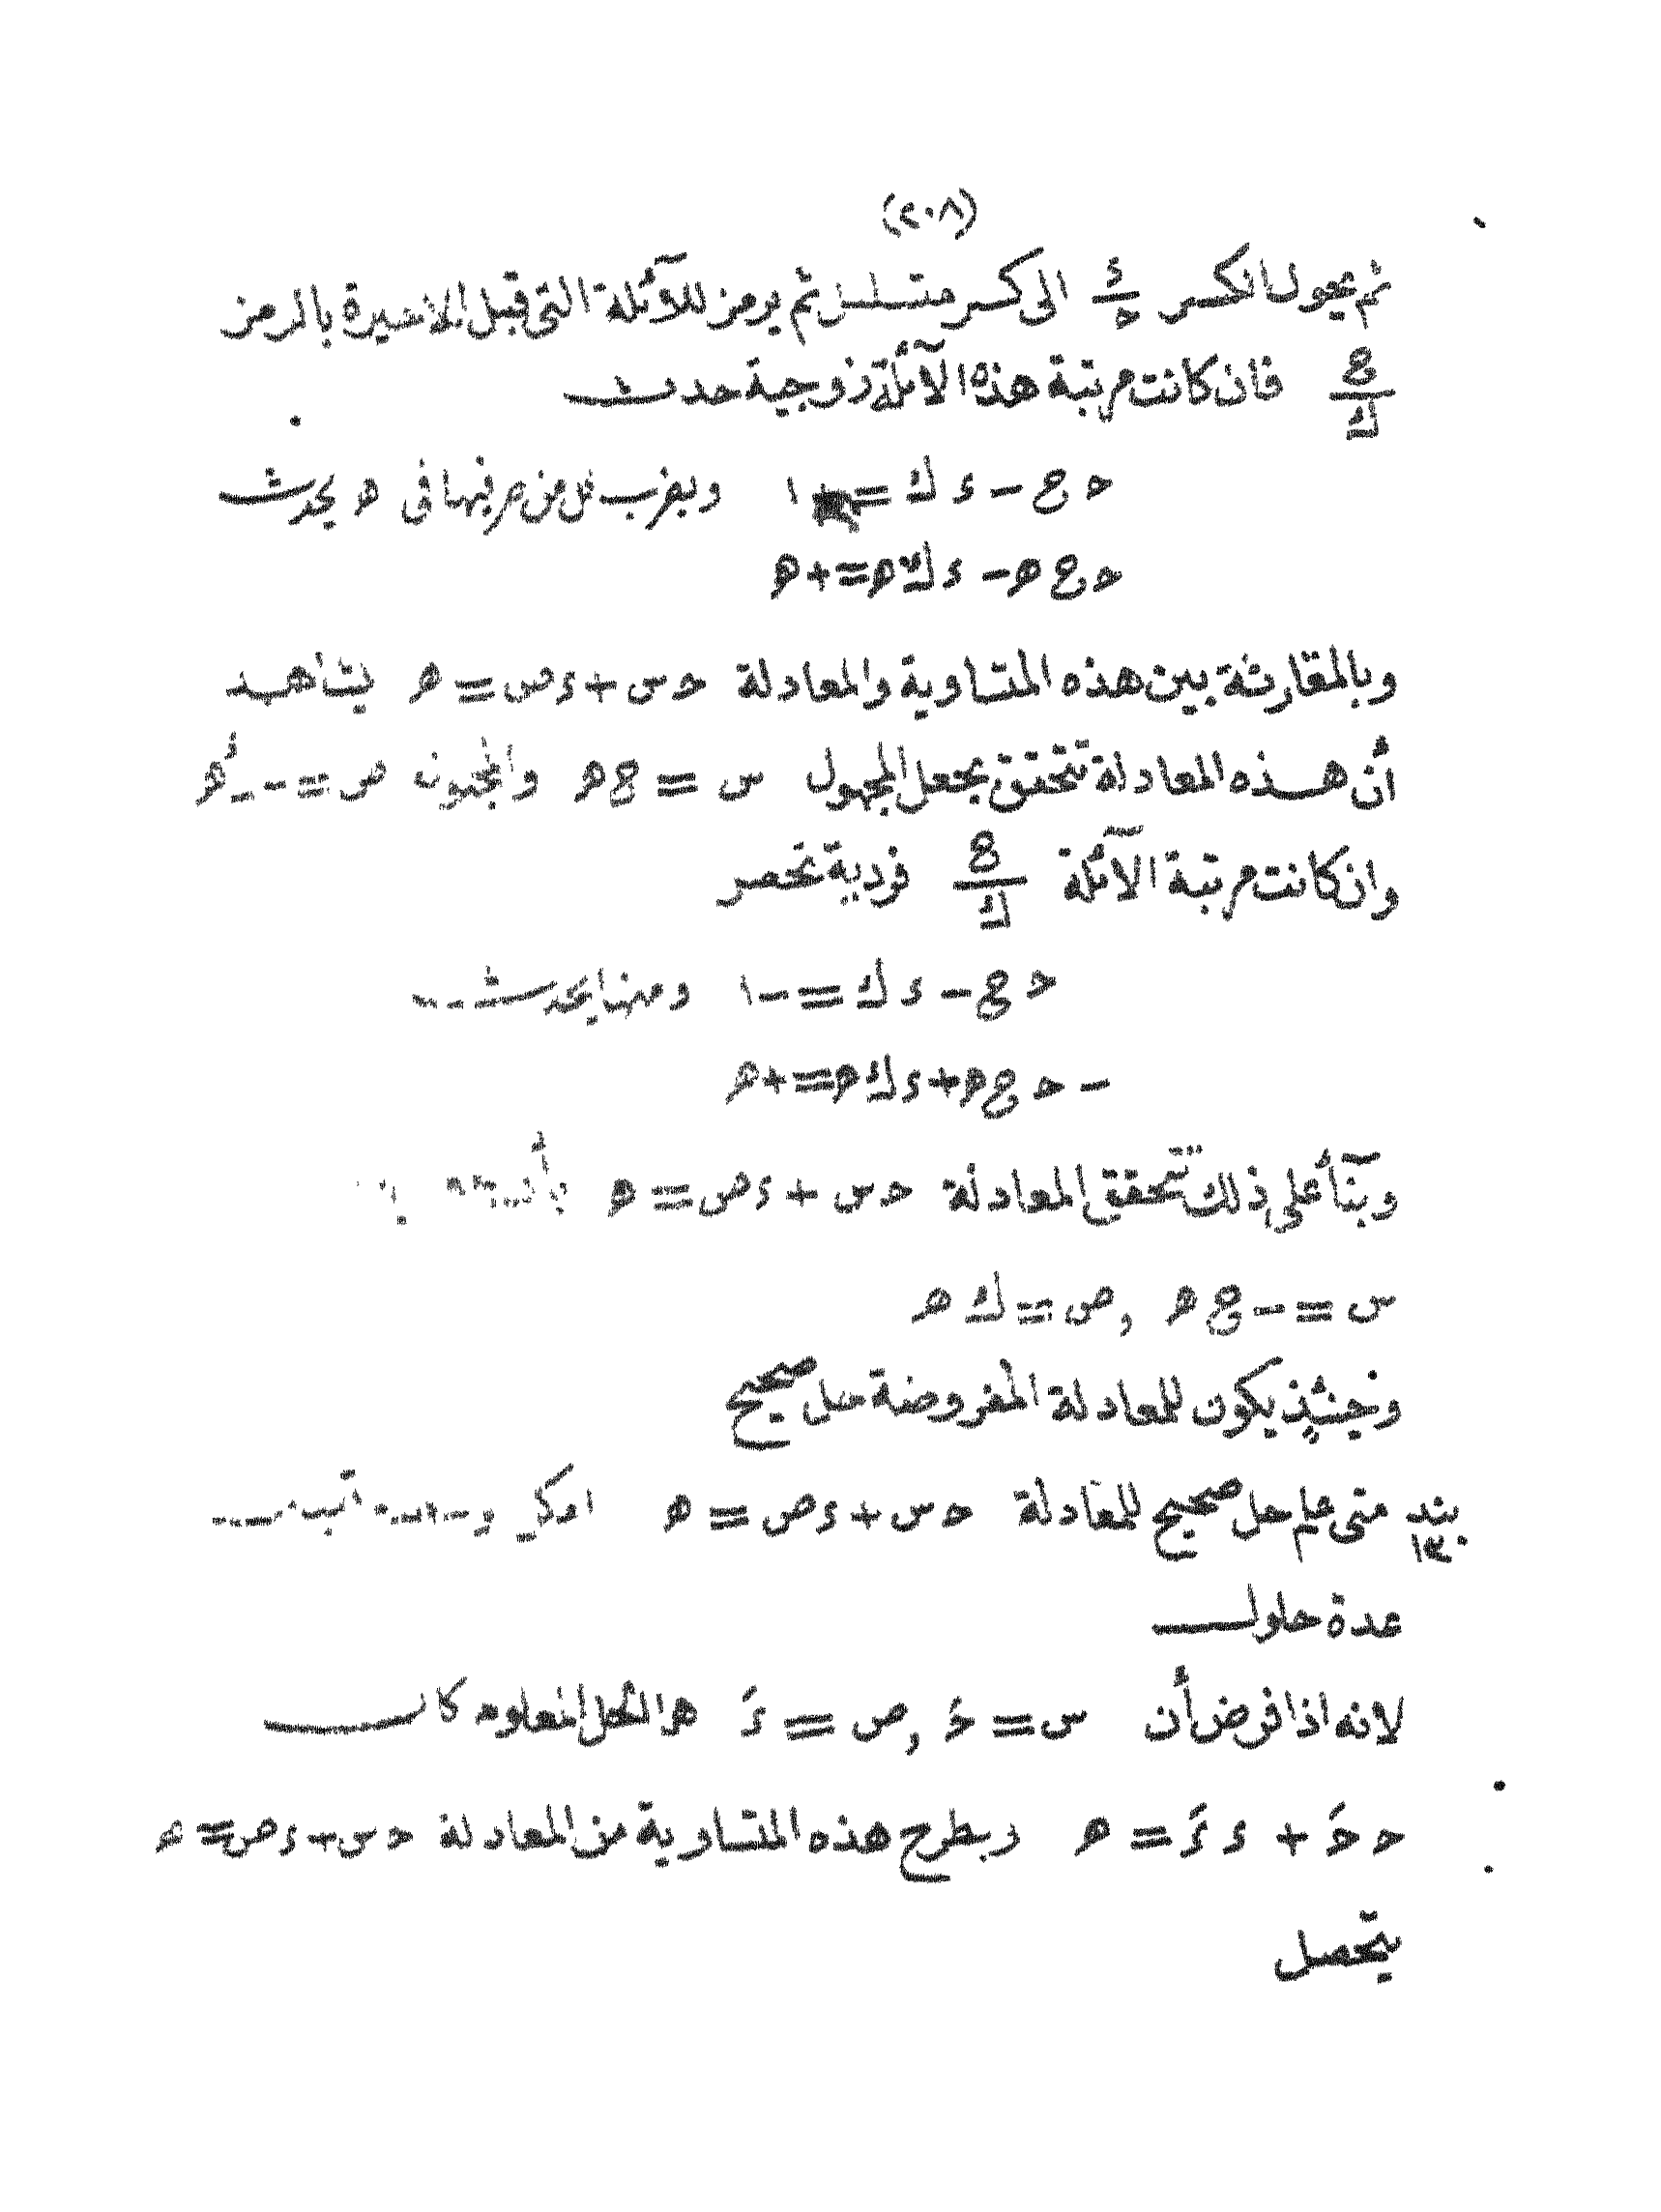 (٢٠٨)
ثم يحول الكسر ء/ح الى كسر متسلسل ثم يرمز للآئلة التى قبل الاخيرة بالرمز
ع/ك فان كانت مرتبة هذه الآئلة زوجية حدث
ح ع - ء ك = + ١ وبضرب كل من طرفيها فى ھ يحدث
ح ع ھ - ء ك ھ = + ھ
وبالمقارنة بين هذه المتساوية والمعادلة ح س + ء ص = ھ يشاهد
أن هذه المعادلة تتحقق بجعل المجهول س = ع ھ والمجهول ص = - ك ھ
وان كانت مرتبة الآئلة ع/ك فردية تحصر
ح ع - ء ك = - ١ ومنها يحدث
- ح ع ھ + ء ك ھ = + ھ
وبنآأ على ذلك تتحقق المعادلة ح س + ء ص = ھ
س = - ع ھ , ص = ك ھ
وحينئذ يكون للمعادلة المفروضة حل صحيح
بند ١٣٠ متى علم حل صحيح للمعادلة ح س + ء ص = ھ امكن
عدة حلول
لانه اذا فرض أن س = حَ , ص = ءَ هو الحل المعلوم كان
ح حَ + ء ءَ = ھ وبطرح هذه المتساوية من المعادلة ح س + ء ص = ھ
يتحصل